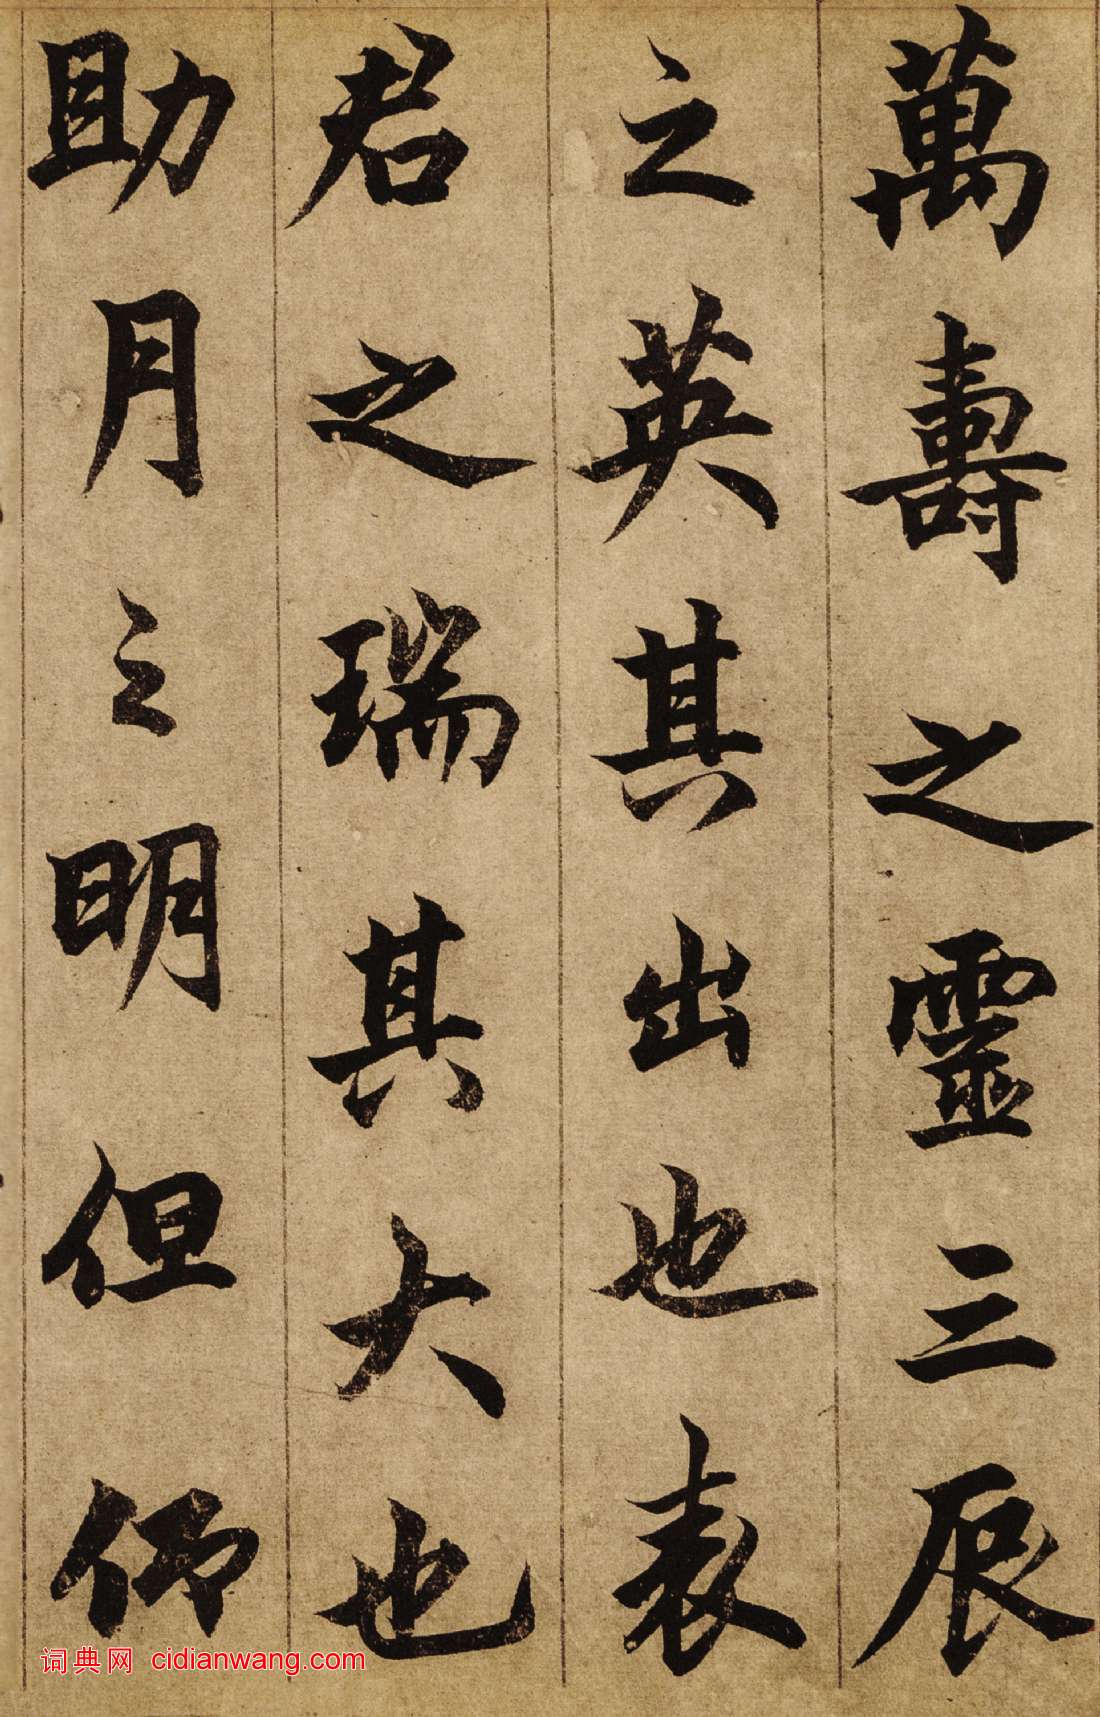 萬壽之靈三辰
之英其出也表
君之瑞其大也
助月之明但仰
词典网 cidianwang.com